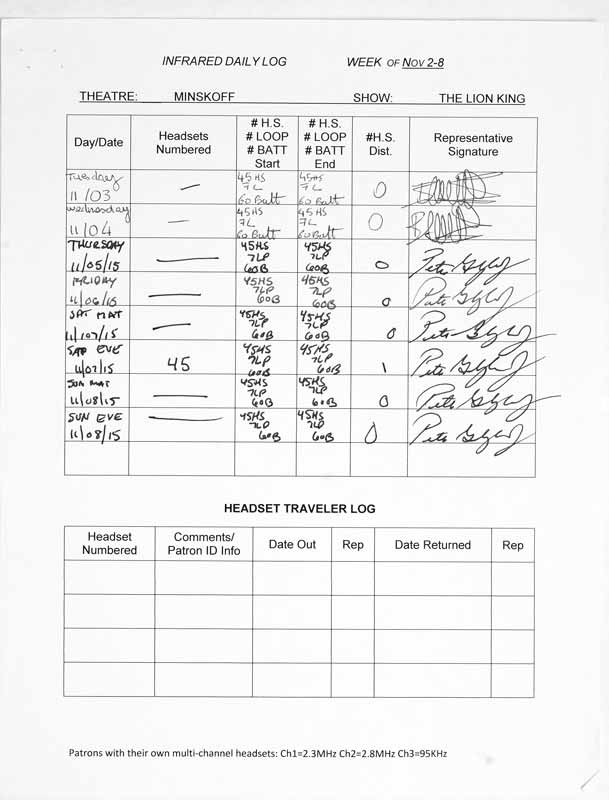 INFRARED DAILY LOG WEEK OF NOV 2-8
THEATRE: MINSKOFF SHOW: THE LION KING
Day/Date
Headsets
Numbered
# H.S.
# LOOP
# BATT
Start
# H.S.
# LOOP
# BATT
End
#H.S.
Dist.
Representative
Signature
Tuesday
11/03
—
45HS
7L
60 Batt
45HS
7L
60 Batt
0
Wednesday
11/04
—
45HS
7L
60 Batt
45HS
7L
60 Batt
0
THURSDAY
11/05/15
—
45HS
7LP
60B
45HS
7LP
60B
0
FRIDAY
11/06/15
—
45HS
7LP
60B
45HS
7LP
60B
0
SAT MAT
11/07/15
—
45HS
7LP
60B
45HS
7LP
60B
0
SAT EVE
11/07/15
45
45HS
7LP
60B
45HS
7LP
60B
1
SUN MAT
11/08/15
—
45HS
7LP
60B
45HS
7LP
60B
0
SUN EVE
11/08/15
—
45HS
7LP
60B
45HS
7LP
60B
0
HEADSET TRAVELER LOG
Headset
Numbered
Comments/
Patron ID Info
Date Out
Rep
Date Returned
Rep
Patrons with their own multi-channel headsets: Ch1=2.3MHz Ch2=2.8MHz Ch3=95KHz